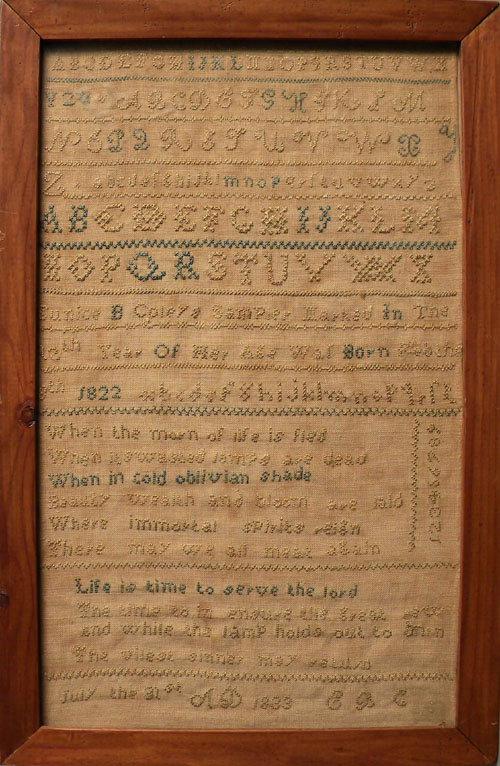 A B C D E F G H I J K L M N O P Q R S T U V W X
Y Z & A B C D E F G H I K L M
N O P Q R S T U V W X
Z a b c d e f g h i j k l m n o p q r s t u v w x y z
A B C D E F G H I J K L M
N O P Q R S T U V W X
Eunice B Coley's Sampler Marked In The
12th Year Of Her Age Was Born
th 1822 a b c d e f g h i j k l m n o p q r
When the morn of life is fled
When its wasted lamps are dead
When in cold oblivian shade
Beauty wealth and bloom are laid
Where immortal spirits reign
There may we all meet again
1 2 3 4 5 6 7 8 9
Life is time to serve the lord
The time to in ensure the great
and while the lamp holds out to burn
The vilest sinner may return
July the 31st AD 1833 E B C